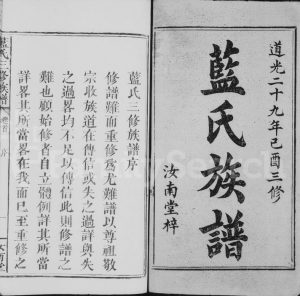 道光二十九年己酉三修
藍氏族譜
汝南堂梓
藍氏三修族譜序
修譜難而重修為尤難譜以尊祖敬
宗收族道在傳信或失之過詳與失
之過畧均不足以傳信此則修譜之
難也顧始修者自立體例詳其所當
詳畧其所當畧在我而已至重修之
藍氏三修族譜
卷首
序